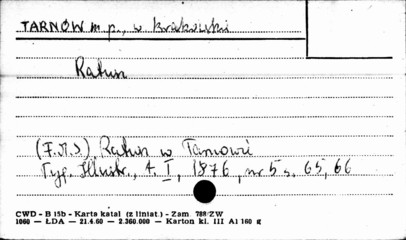 TARNÓW m. p., w. krakowski
Ratusz
(F.M.S.) Ratusz w Tarnowie
Tyg. Illustr., t. I, 1876, nr 5 s. 65, 66
CWD - B 15b - Karta katal (z liniat.) - Zam 788/ZW
1060 — ŁDA — 21.4.60 — 2.360.000 — Karton kl. III A1 160 g